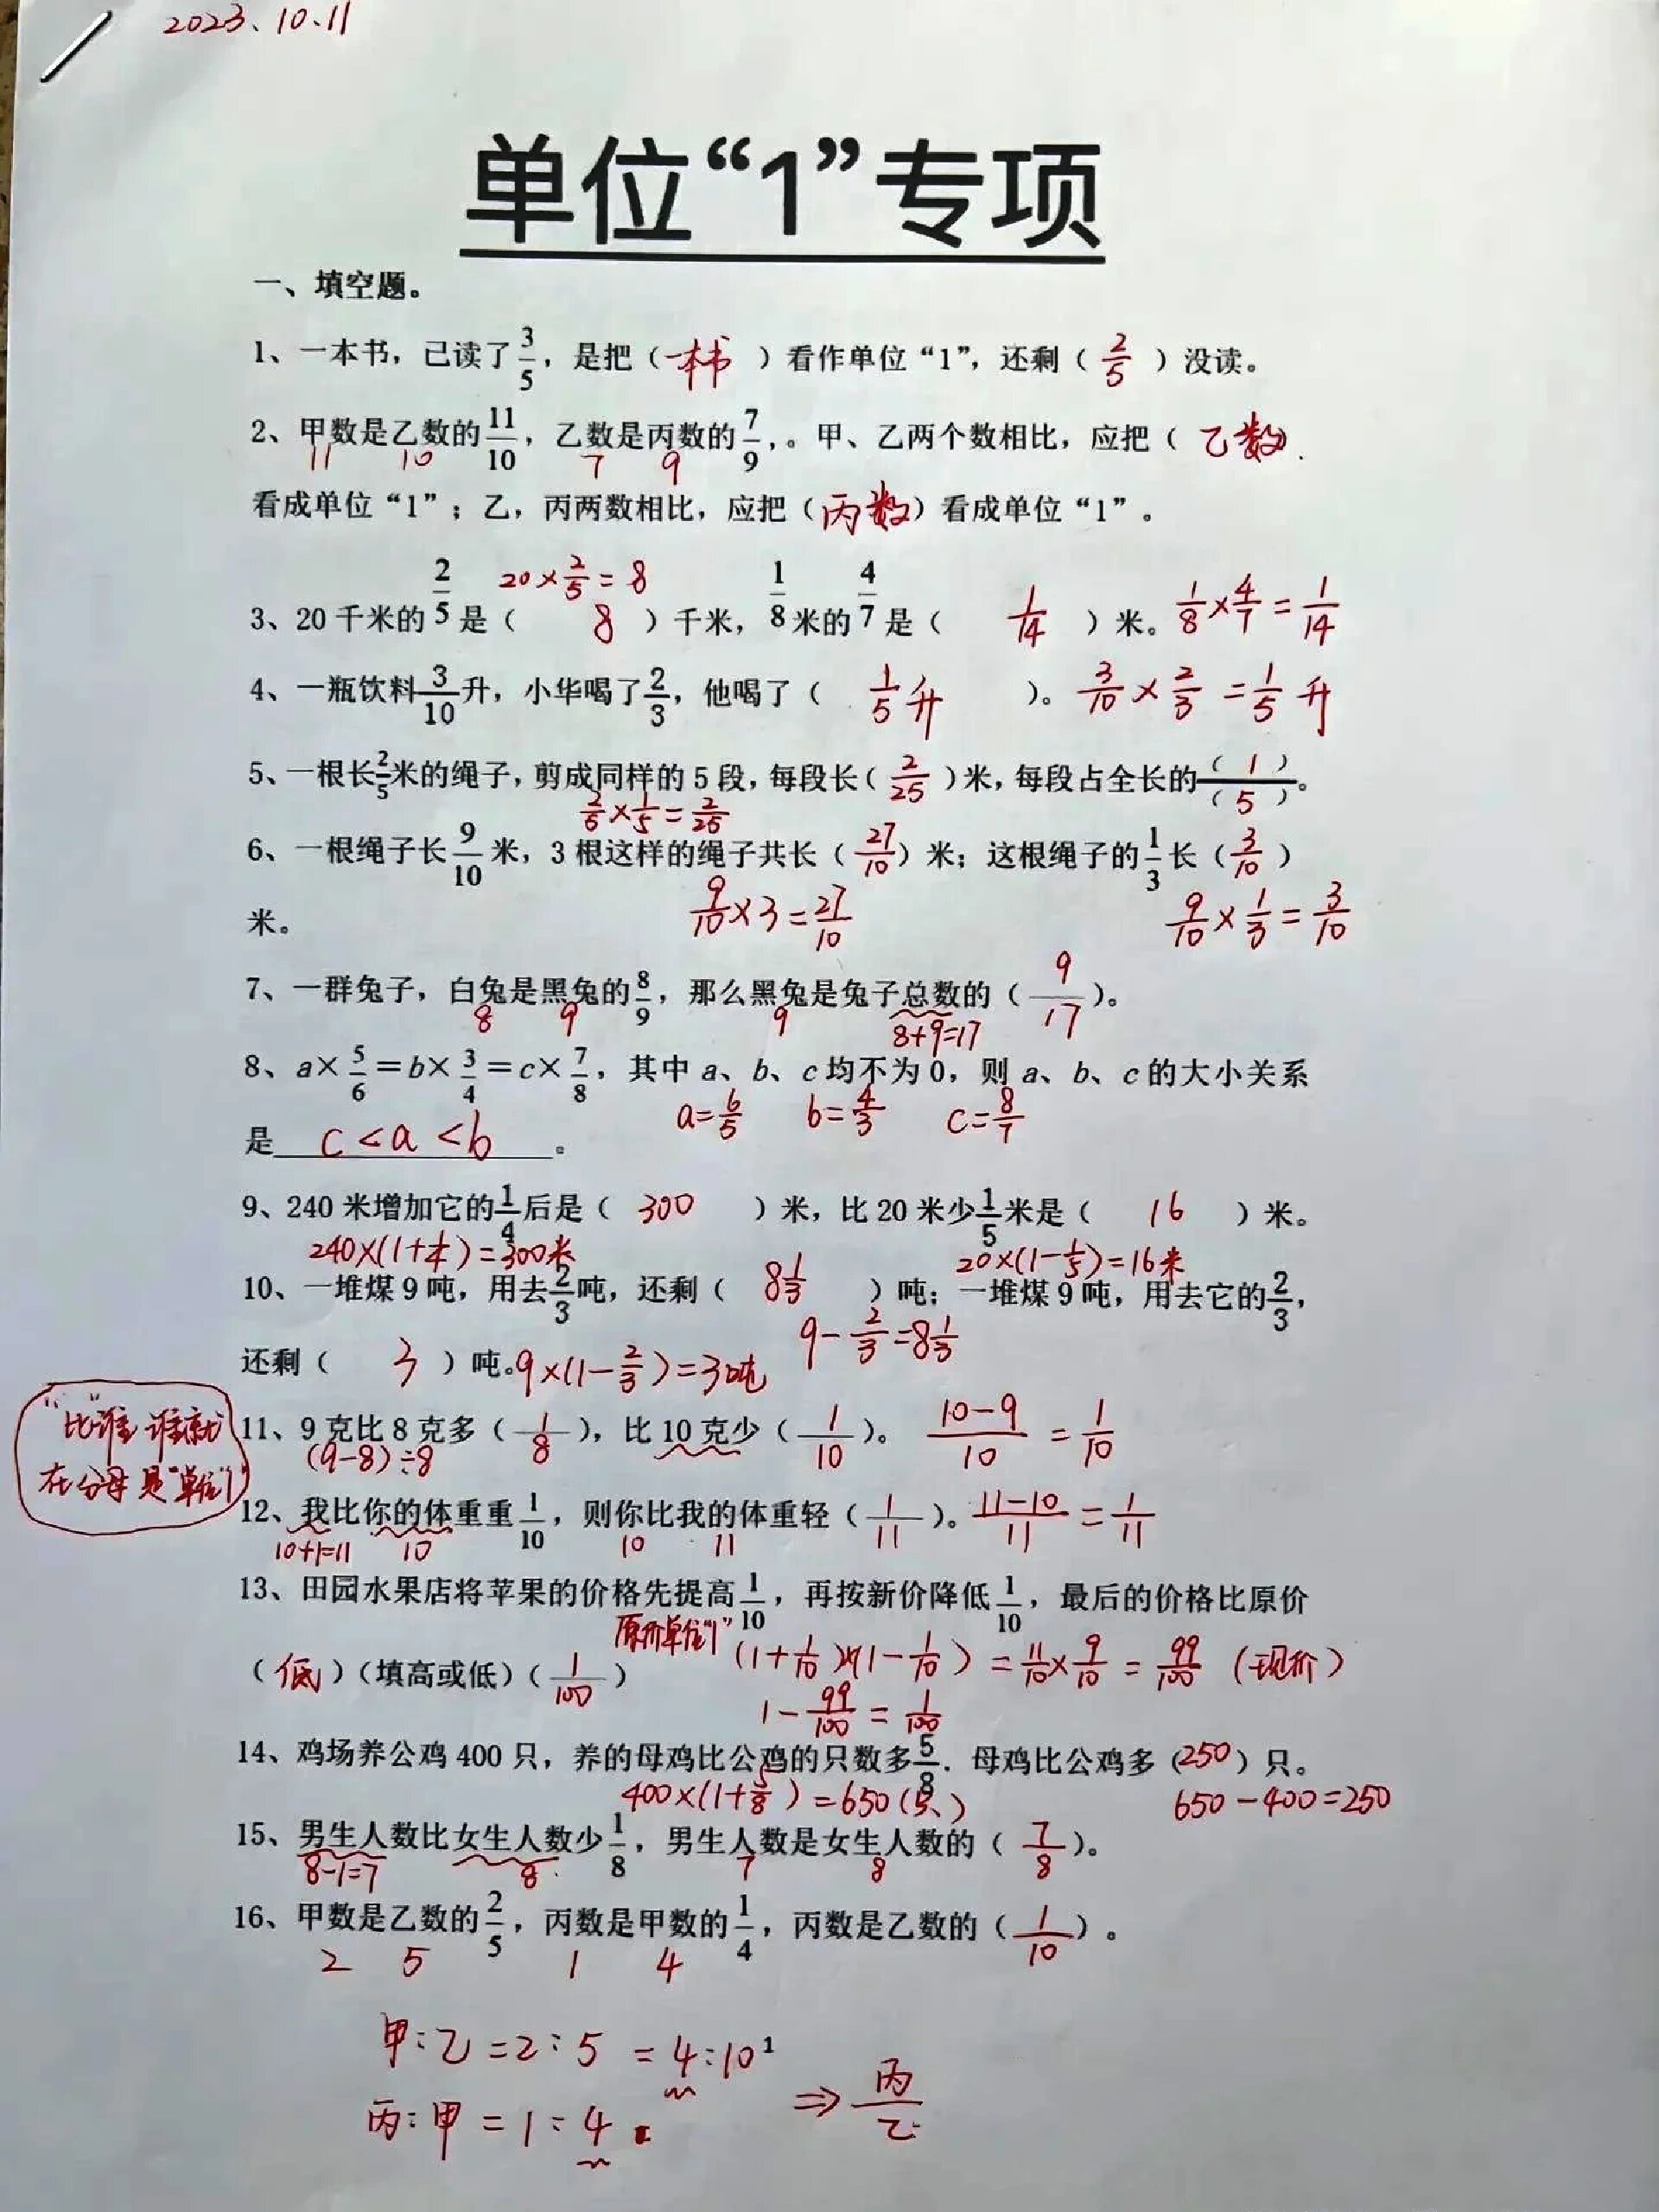 2023.10.11
单位“1”专项
一、填空题。
1、一本书，已读了3/5，是把（一本书）看作单位“1”，还剩（2/5）没读。
2、甲数是乙数的11/10，乙数是丙数的7/9，。甲、乙两个数相比，应把（乙数）.
11 10 7 9
看成单位“1”；乙，丙两数相比，应把（丙数）看成单位“1”。
20×2/5=8
3、20千米的2/5是（8）千米，1/8米的4/7是（1/14）米。1/8×4/7=1/14
4、一瓶饮料3/10升，小华喝了2/3，他喝了（1/5升）。3/10×2/3=1/5升
5、一根长2/5米的绳子，剪成同样的5段，每段长（2/25）米，每段占全长的（1）/（5）。
2/5×1/5=2/25
6、一根绳子长9/10米，3根这样的绳子共长（27/10）米；这根绳子的1/3长（3/10）
米。 9/10×3=27/10 9/10×1/3=3/10
7、一群兔子，白兔是黑兔的8/9，那么黑兔是兔子总数的（9/17）。
8 9 9 8+9=17
8、a×5/6=b×3/4=c×7/8，其中a、b、c均不为0，则a、b、c的大小关系
a=6/5 b=4/3 c=8/7
是c<a<b。
9、240米增加它的1/4后是（300）米，比20米少1/5米是（16）米。
240×(1+1/4)=300米 20×(1-1/5)=16米
10、一堆煤9吨，用去2/3吨，还剩（8 1/3）吨；一堆煤9吨，用去它的2/3，
9-2/3=8 1/3
还剩（3）吨。9×(1-2/3)=3吨
“比”谁谁就
在分母是“单位1”
11、9克比8克多（1/8），比10克少（1/10）。(10-9)/10=1/10
(9-8)÷8
12、我比你的体重重1/10，则你比我的体重轻（1/11）。(11-10)/11=1/11
10+1=11 10 10 11
13、田园水果店将苹果的价格先提高1/10，再按新价降低1/10，最后的价格比原价
原价单位“1”
（低）（填高或低）（1/100） (1+1/10)×(1-1/10)=11/10×9/10=99/100（现价）
1-99/100=1/100
14、鸡场养公鸡400只，养的母鸡比公鸡的只数多5/8. 母鸡比公鸡多（250）只。
400×(1+5/8)=650(只) 650-400=250
15、男生人数比女生人数少1/8，男生人数是女生人数的（7/8）。
8-1=7 8 7 8
16、甲数是乙数的2/5，丙数是甲数的1/4，丙数是乙数的（1/10）。
2 5 1 4
甲:乙=2:5=4:10
1
丙:甲=1:4
⇒丙/乙